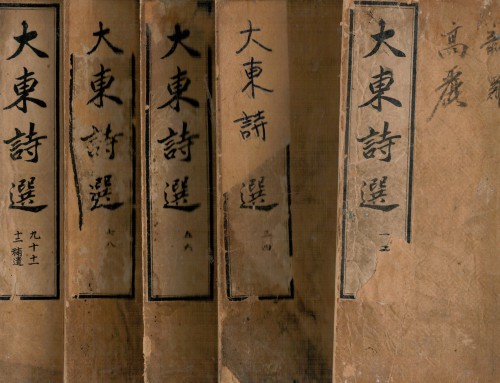 高麗
大東詩選
一二
大東詩選
三四
大東詩選
五六
大東詩選
七八
大東詩選
九十十一
十二補遺